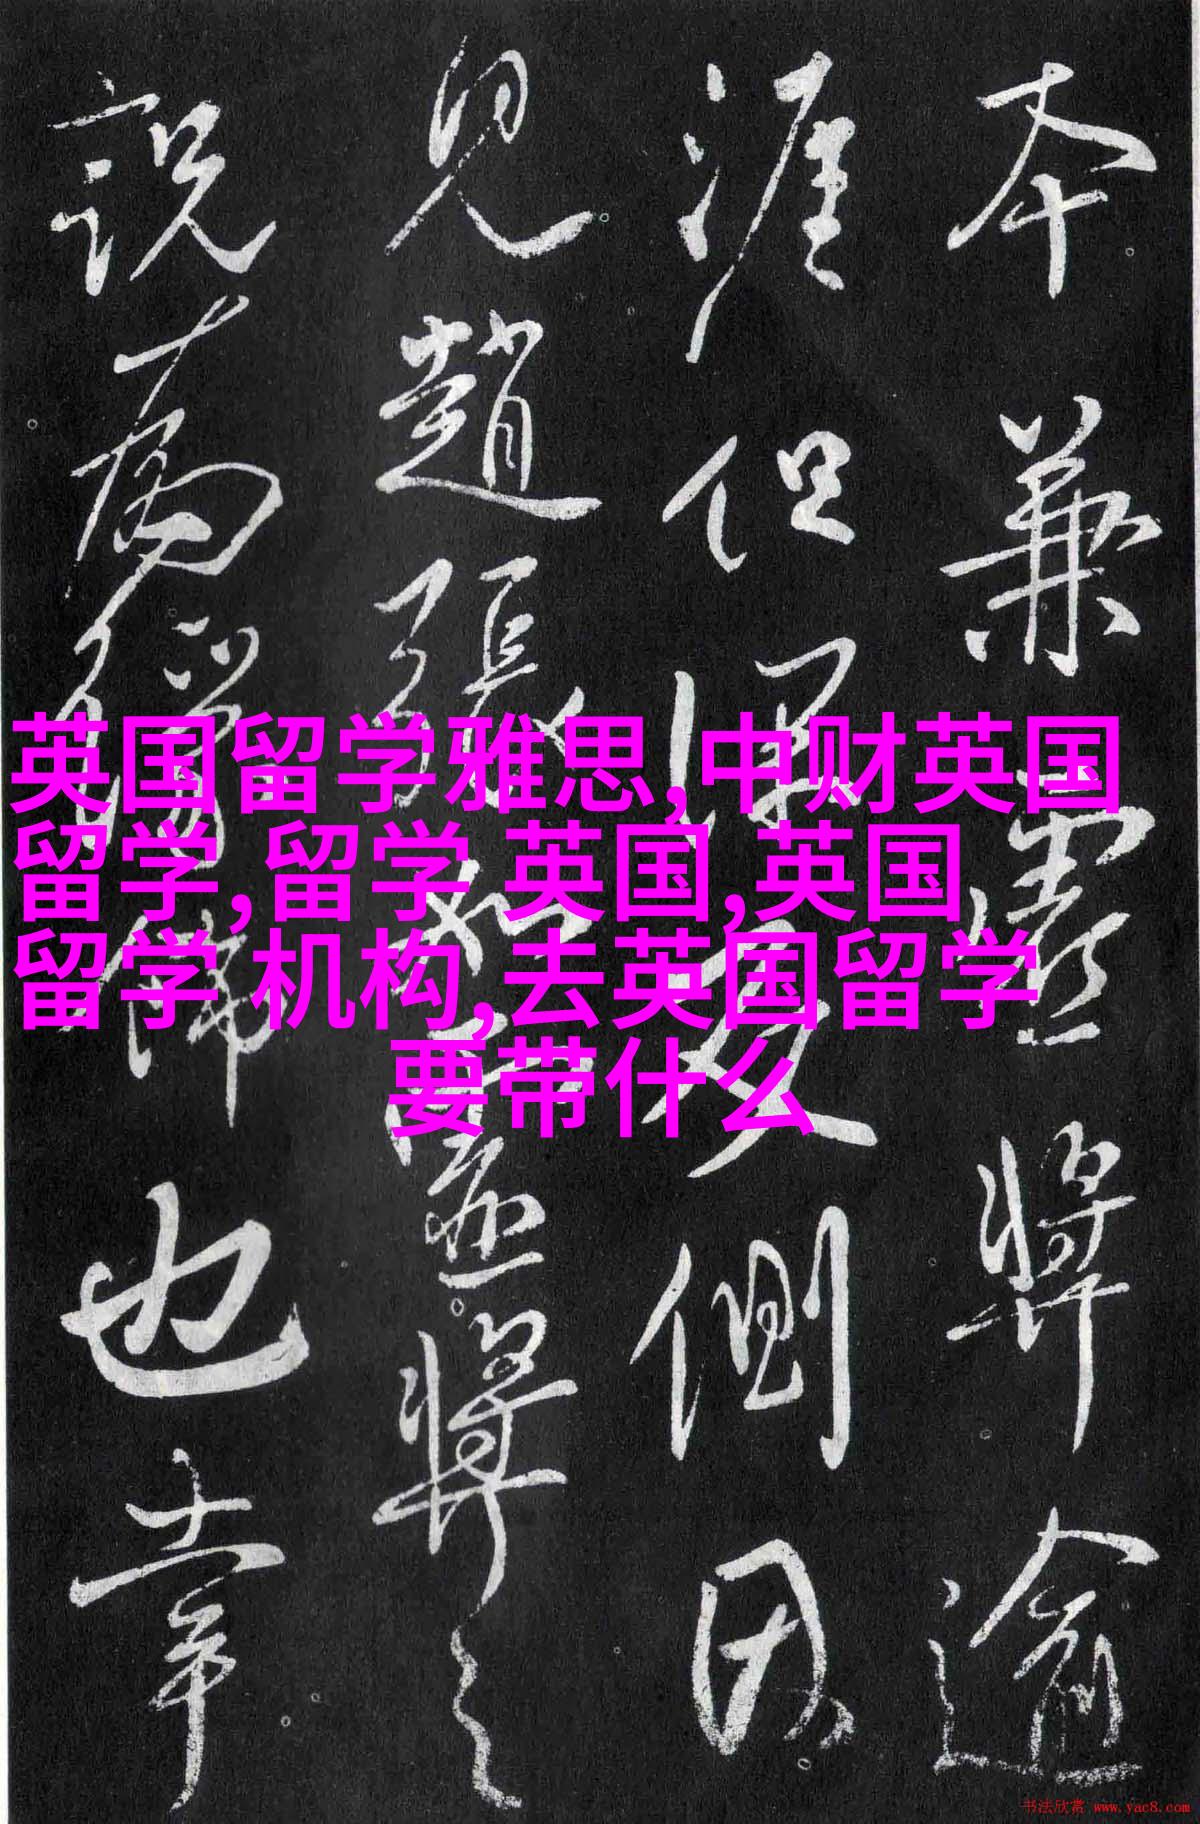 英国留学雅思,中财英国
留学,留学 英国,英国
留学 机构,去英国留学
要带什么
本兼將逾
涯但側因
見趙張將之
說為佛也幸
书法欣赏 www.yac8.com